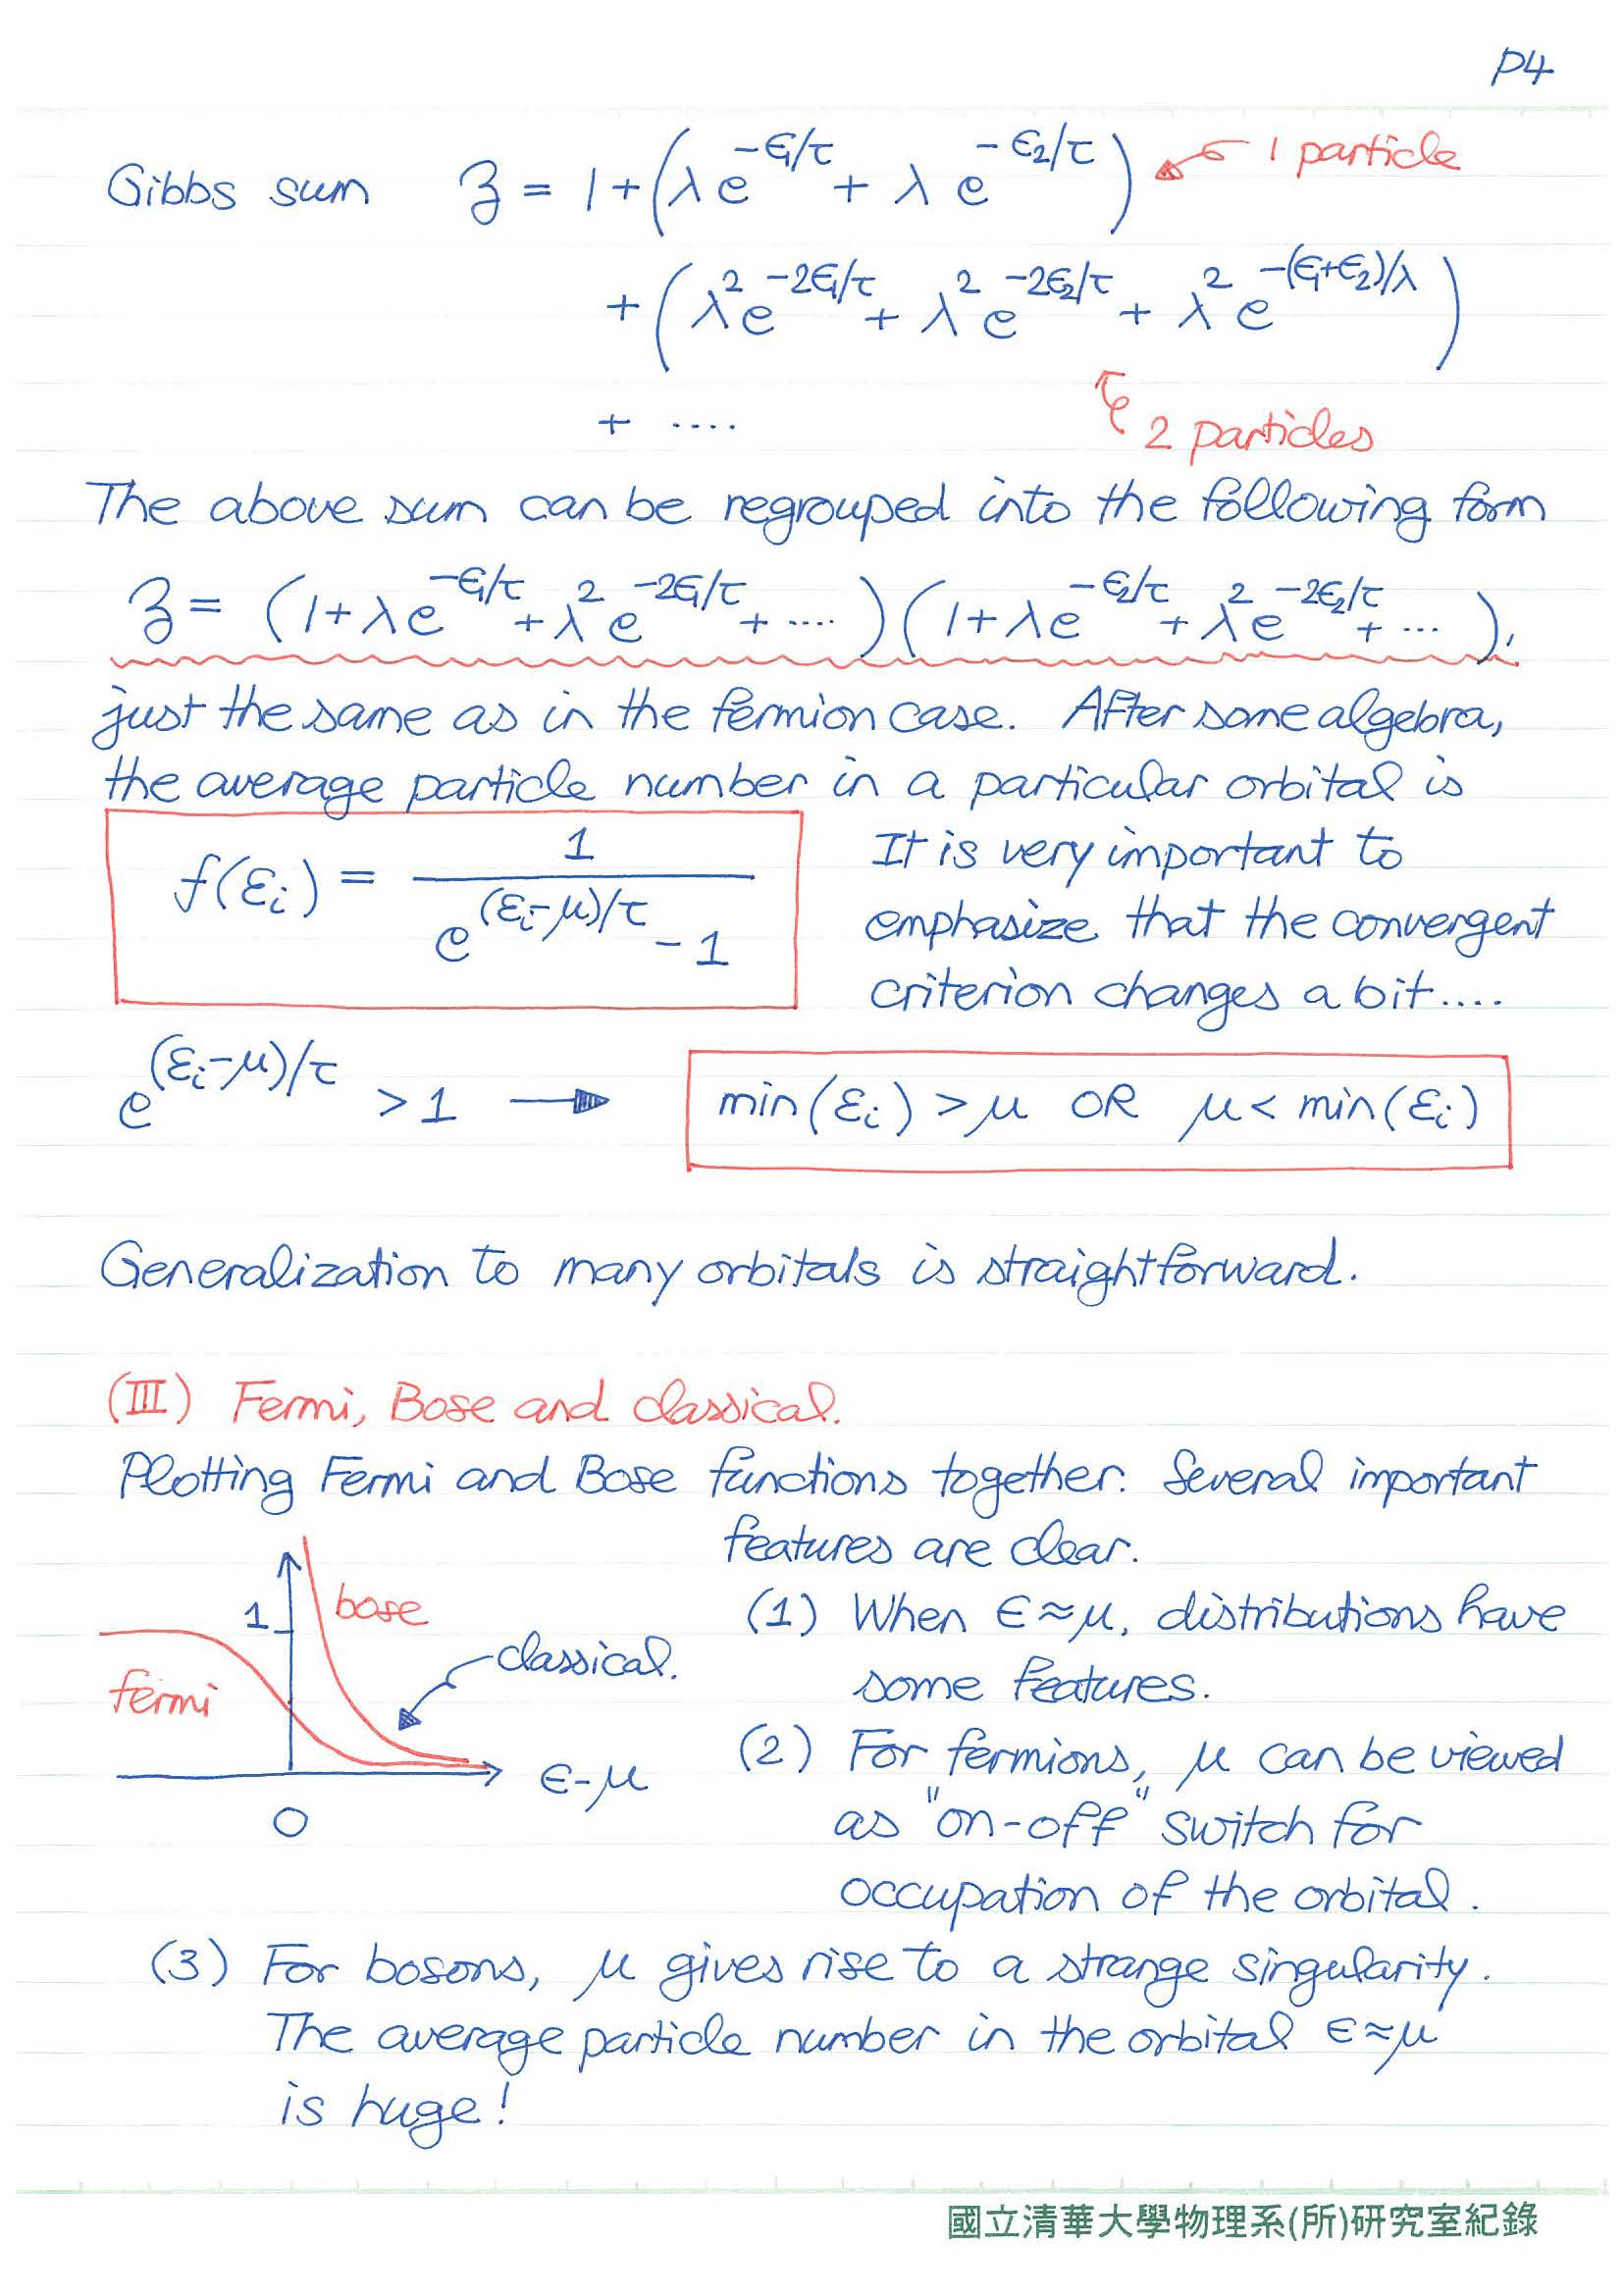 P4
Gibbs sum 𝔷 = 1 + (λe^{-ϵ₁/τ} + λe^{-ϵ₂/τ}) 1 particle
+ (λ²e^{-2ϵ₁/τ} + λ²e^{-2ϵ₂/τ} + λ²e^{-(ϵ₁+ϵ₂)/λ})
+ ....
2 particles
The above sum can be regrouped into the following form
𝔷 = (1+λe^{-ϵ₁/τ} + λ²e^{-2ϵ₁/τ} + ....)(1+λe^{-ϵ₂/τ} + λ²e^{-2ϵ₂/τ} + ...),
just the same as in the fermion case. After some algebra,
the average particle number in a particular orbital is
f(εᵢ) = 1 / (e^{(εᵢ-μ)/τ} - 1)
It is very important to
emphasize that the convergent
criterion changes a bit....
e^{(εᵢ-μ)/τ} > 1 → min(εᵢ) > μ OR μ < min(εᵢ)
Generalization to many orbitals is straightforward.
(III) Fermi, Bose and classical.
Plotting Fermi and Bose functions together. Several important
features are clear.
1
bose
classical.
fermi
ϵ-μ
0
(1) When ϵ≈μ, distributions have
some features.
(2) For fermions, μ can be viewed
as "on-off" switch for
occupation of the orbital.
(3) For bosons, μ gives rise to a strange singularity.
The average particle number in the orbital ϵ≈μ
is huge!
國立清華大學物理系(所)研究室紀錄